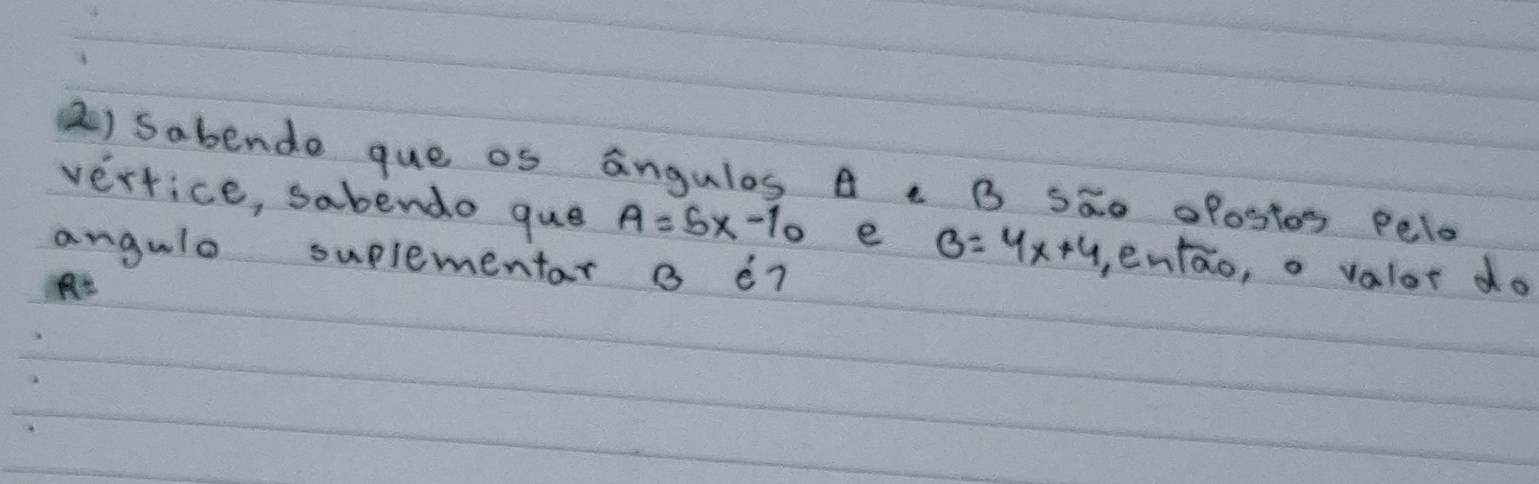 2) Sabendo que os ângulos A e B são opostos pelo
vértice, sabendo que A=5x-10 e B=4x+4, então, o valor do
angulo suplementar B é?
R=